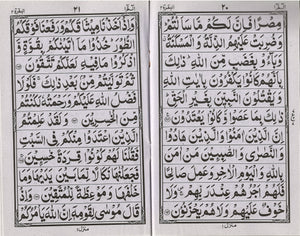 البقرة ٢
٢٠
الٓمّٓ ١
مِصْرًا فَاِنَّ لَكُمْ مَّا سَاَلْتُمْ
وَضُرِبَتْ عَلَيْهِمُ الذِّلَّةُ وَالْمَسْكَنَةُ
وَبَآءُوْ بِغَضَبٍ مِّنَ اللّٰهِ ذٰلِكَ
بِاَنَّهُمْ كَانُوْا يَكْفُرُوْنَ بِاٰيٰتِ اللّٰهِ
وَيَقْتُلُوْنَ النَّبِيّٖنَ بِغَيْرِ الْحَقِّ
ذٰلِكَ بِمَا عَصَوْا وَّكَانُوْا يَعْتَدُوْنَ
اِنَّ الَّذِيْنَ اٰمَنُوْا وَالَّذِيْنَ هَادُوْا
وَالنَّصٰرٰى وَالصّٰبِـِٕيْنَ مَنْ اٰمَنَ
بِاللّٰهِ وَالْيَوْمِ الْاٰخِرِ وَعَمِلَ صَالِحًا
فَلَهُمْ اَجْرُهُمْ عِنْدَ رَبِّهِمْ وَلَا
خَوْفٌ عَلَيْهِمْ وَلَا هُمْ يَحْزَنُوْنَ
منزل ١
الٓمّٓ ١
٢١
البقرة ٢
وَاِذْ اَخَذْنَا مِيْثَاقَكُمْ وَرَفَعْنَا فَوْقَكُمُ
الطُّوْرَ خُذُوْا مَآ اٰتَيْنٰكُمْ بِقُوَّةٍ وَّ
اذْكُرُوْا مَا فِيْهِ لَعَلَّكُمْ تَتَّقُوْنَ
ثُمَّ تَوَلَّيْتُمْ مِّنْۢ بَعْدِ ذٰلِكَ فَلَوْلَا
فَضْلُ اللّٰهِ عَلَيْكُمْ وَرَحْمَتُهٗ لَكُنْتُمْ
مِّنَ الْخٰسِرِيْنَ وَلَقَدْ عَلِمْتُمُ
الَّذِيْنَ اعْتَدَوْا مِنْكُمْ فِي السَّبْتِ
فَقُلْنَا لَهُمْ كُوْنُوْا قِرَدَةً خٰسِـِٕيْنَ
فَجَعَلْنٰهَا نَكَالًا لِّمَا بَيْنَ يَدَيْهَا وَمَا
خَلْفَهَا وَمَوْعِظَةً لِّلْمُتَّقِيْنَ وَاِذْ
قَالَ مُوْسٰى لِقَوْمِهٖٓ اِنَّ اللّٰهَ يَاْمُرُكُمْ
منزل ١